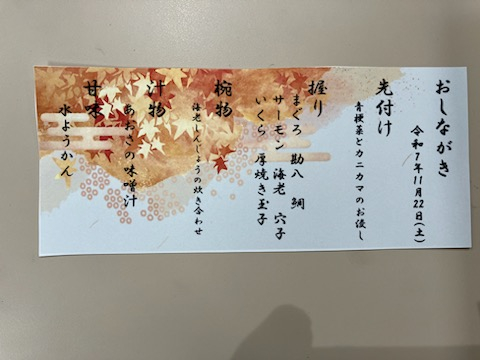 おしながき
令和7年11月22日(土)
先付け
青梗菜とカニカマのお浸し
握り
まぐろ 勘八 鯛
サーモン 海老 穴子
いくら 厚焼き玉子
椀物
海老しんじょうの炊き合わせ
汁物
あおさの味噌汁
甘味
水ようかん